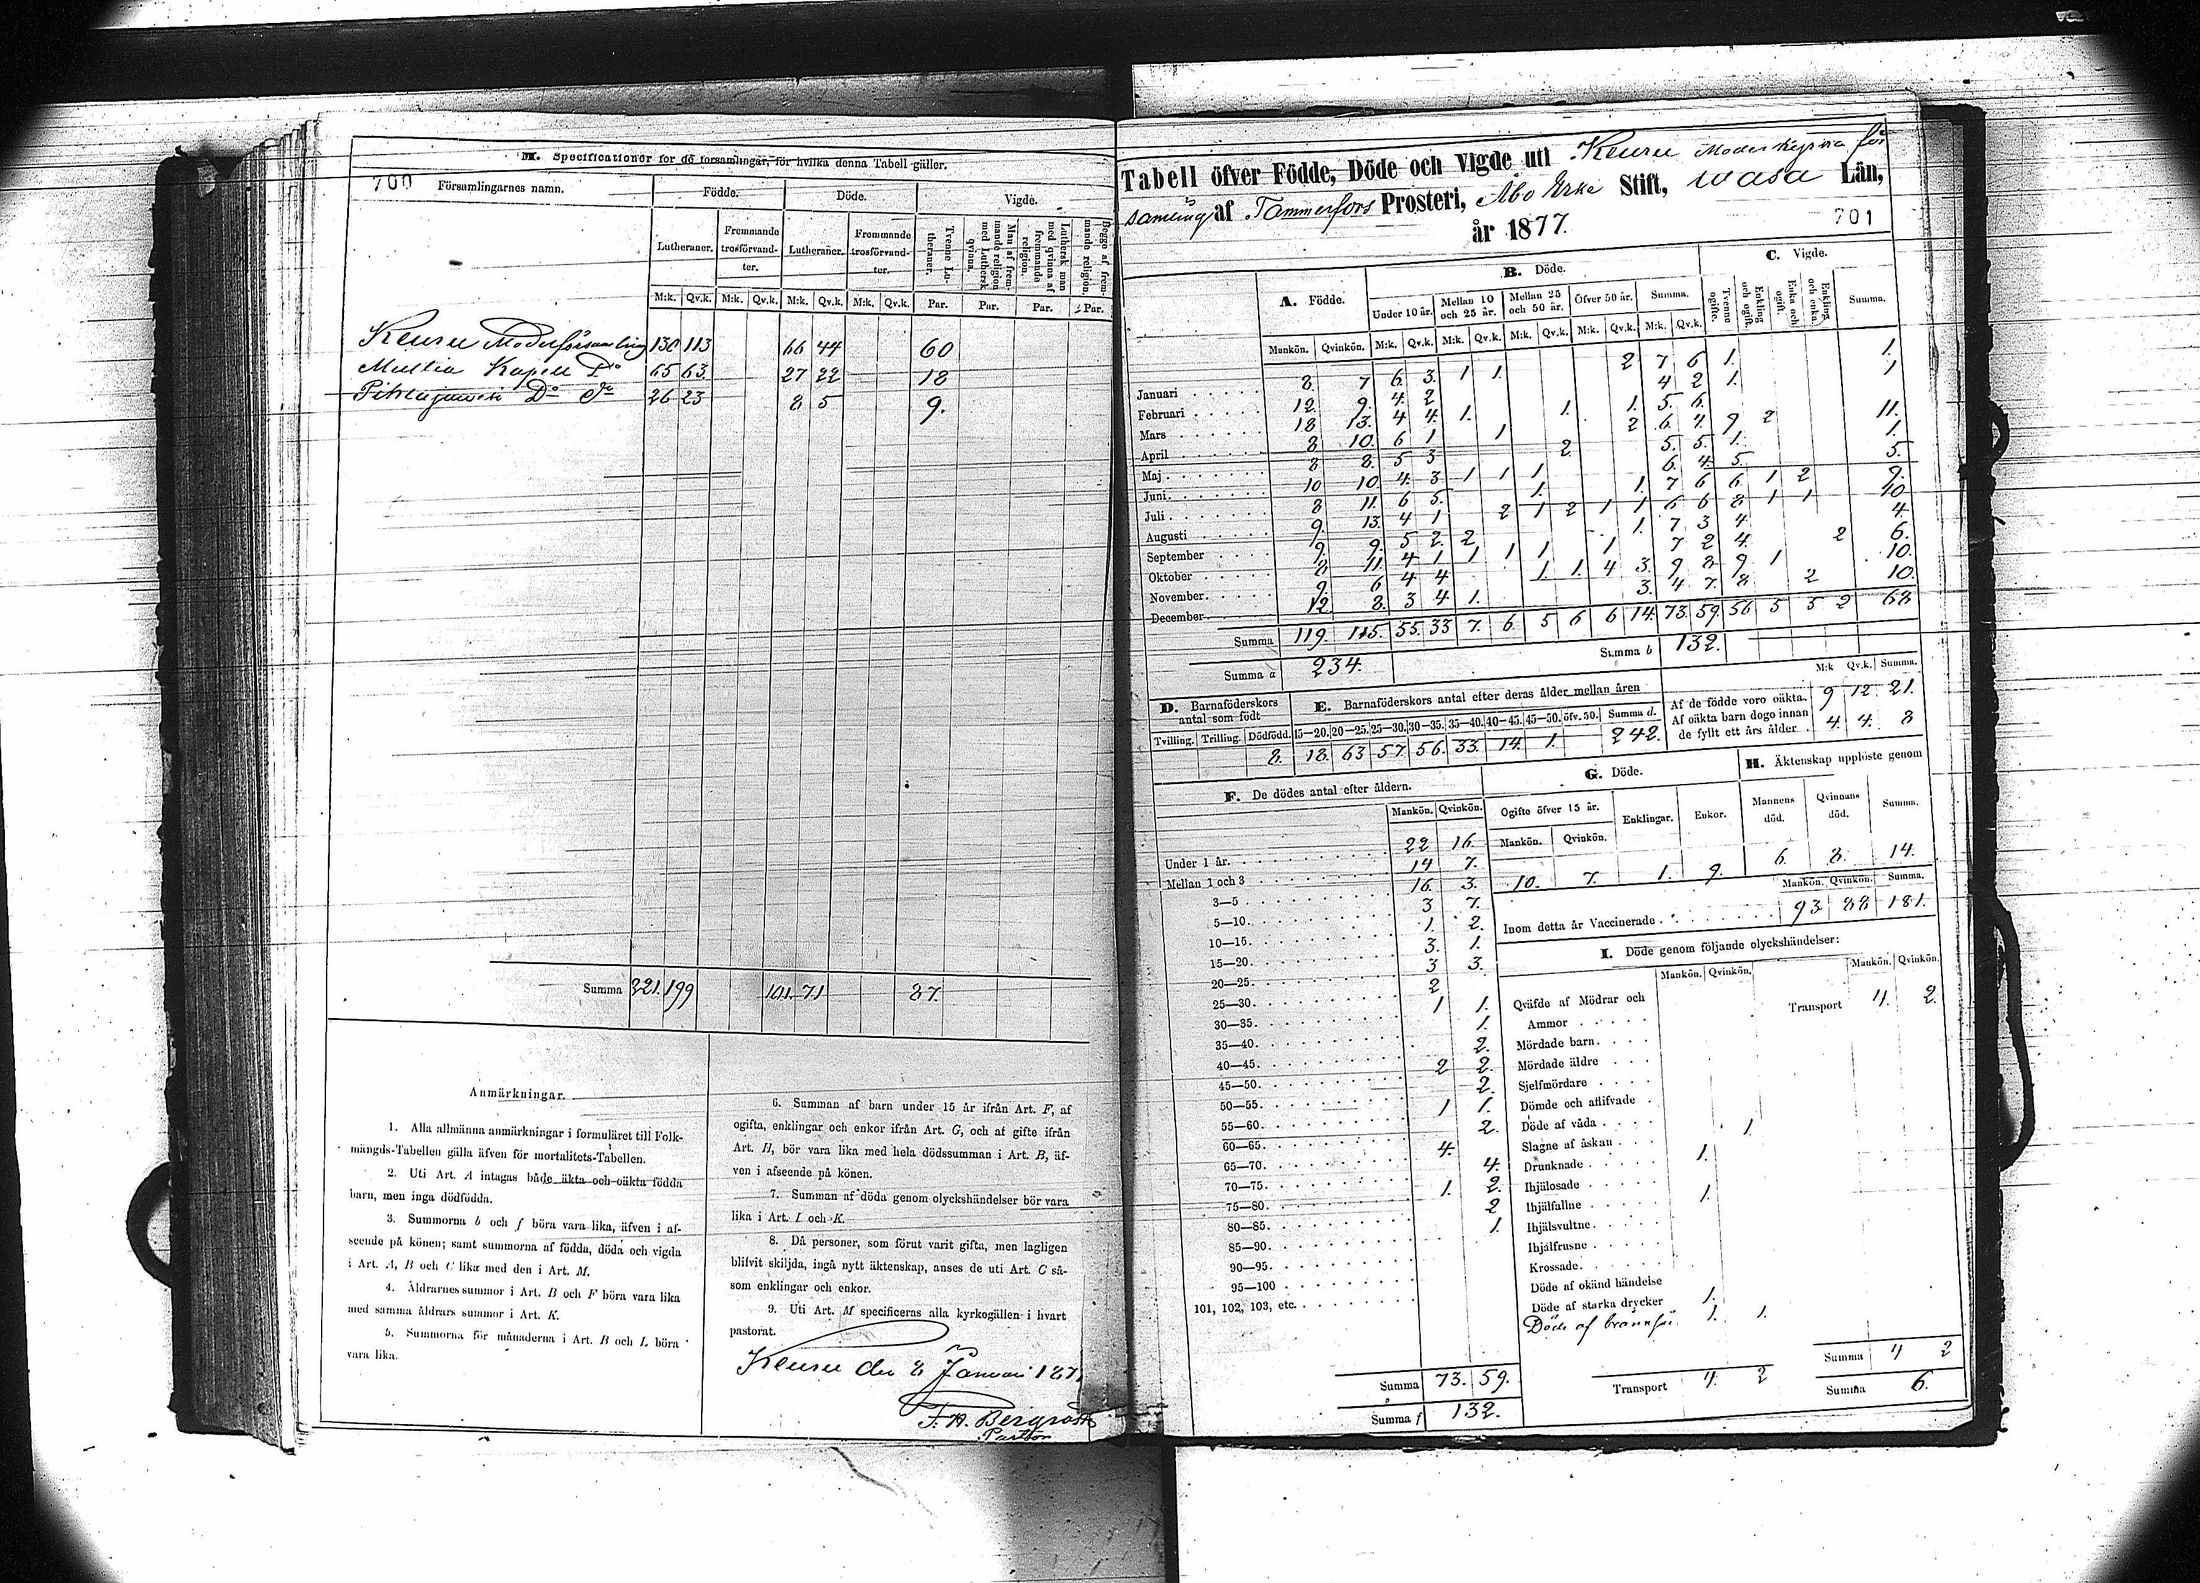 M. Specificationer för de församlingar, för hvilka denna Tabell gäller.
700
Församlingarnes namn. Födde. Döde. Vigde.
Lutheraner. Fremmande trosförvandter. Lutheraner. Fremmande trosförvandter. Tvenne Lutheraner. Man af fremmande religion med Luthersk qvinna. Luthersk man med qvinna af fremmande religion. Begge af fremmande religion.
M:k. Qv.k. M:k. Qv.k. M:k. Qv.k. M:k. Qv.k. Par. Par. Par. Par.
Keuru Moderförsamling 130 113 66 44 60
Multia Kapell Do 65 63 27 22 18
Pihlajavesi Do do 26 23 8 5 9.
Summa 221. 199 101. 71 87.
Anmärkningar.
1. Alla allmänna anmärkningar i formuläret till Folk-
mängds-Tabellen gälla äfven för mortalitets-Tabellen.
2. Uti Art. A intagas både äkta och oäkta födda
barn, men inga dödfödda.
3. Summorna b och f böra vara lika, äfven i af-
seende på könen; samt summorna af födda, döda och vigda
i Art. A, B och C lika med den i Art. M.
4. Åldrarnes summor i Art. B och F böra vara lika
med samma åldrars summor i Art. K.
5. Summorna för månaderna i Art. B och L böra
vara lika.
6. Summan af barn under 15 år ifrån Art. F, af
ogifta, enklingar och enkor ifrån Art. G, och af gifte ifrån
Art. H, bör vara lika med hela dödssumman i Art. B, äf-
ven i afseende på könen.
7. Summan af döda genom olyckshändelser bör vara
lika i Art. I och K.
8. Då personer, som förut varit gifta, men lagligen
blifvit skiljda, ingå nytt äktenskap, anses de uti Art. C så-
som enklingar och enkor.
9. Uti Art. M specificeras alla kyrkogällen i hvart
pastorat.
Keuru den 8 Januari
F. A. Bergroth
Pastor
Tabell öfver Födde, Döde och Vigde uti Keuru Moderkyrko för
samling af Tammerfors Prosteri, Åbo Erke Stift, Wasa Län,
år 1877.
701
A. Födde. B. Döde. C. Vigde.
Under 10 år. Mellan 10 och 25 år. Mellan 25 och 50 år. Öfver 50 år. Summa. Tvenne ogifte. Enkling och ogift. Enka och ogift. Enkling och enka. Summa.
Mankön. Qvinkön. M:k. Qv.k. M:k. Qv.k. M:k. Qv.k. M:k. Qv.k. M:k. Qv.k.
Januari 8. 7 6. 3. 1 1. 2 7 6 1. 1.
Februari 12. 9. 4. 2 4 2 1. 1
Mars 18 13. 4 4. 1. 1. 1. 5. 6.
April 8 10. 6 1 1 2 6. 4. 9 2 11.
Maj 8 8. 5 3 2. 5. 5. 1. 1.
Juni 10 10. 4. 3. 1 1 1 6. 4. 5. 5.
Juli 8 11. 6 5. 1. 1. 7 6 6 1 2 9.
Augusti 9. 13. 4 1 2 1 2 1 1 6 6 8 1 1 10
September 9. 9. 5 2. 2 1. 7 3 4 4.
Oktober 8 11. 4 1 1 1 1 1 7 2 4. 2 6.
November 9. 6 4 4 1. 1. 4 3. 9 8 9. 1 10.
December 12. 8. 3 4 1. 3. 4. 7. 8 2 10.
Summa 119. 115. 55. 33 7. 6 5 6 6 14. 73. 59. 56 5 5 2 68
Summa a 234. Summa b 132.
D. Barnaföderskors antal som födt
Tvilling. Trilling. Dödfödd.
8.
E. Barnaföderskors antal efter deras ålder mellan åren
15—20. 20—25. 25—30. 30—35. 35—40. 40—45. 45—50. öfv. 50. Summa d.
18. 63 57. 56. 33. 14. 1. 242.
M:k Qv.k. Summa.
Af de födde voro oäkta. 9 12 21.
Af oäkta barn dogo innan
de fyllt ett års ålder 4. 4. 8
F. De dödes antal efter åldern.
Mankön. Qvinkön.
Under 1 år. 22 16
Mellan 1 och 3 14 7.
3—5 16. 3.
5—10. 3 7.
10—15. 1. 2.
15—20. 3. 1.
20—25. 3 3.
25—30. 2
30—35. 1 1.
35—40. 1.
40—45. 2.
45—50. 2 2.
50—55. 2.
55—60. 1 1.
60—65. 2.
65—70. 4.
70—75. 4.
75—80. 1. 2.
80—85. 2
85—90. 1.
90—95.
95—100
101, 102, 103, etc.
Summa 73. 59.
Summa f 132.
G. Döde.
Ogifte öfver 15 år. Enklingar. Enkor.
Mankön. Qvinkön.
10. 7. 1. 9.
H. Äktenskap upplöste genom
Mannens död. Qvinnans död. Summa.
6. 8. 14.
Mankön. Qvinkön. Summa.
Inom detta år Vaccinerade 93 88 181.
I. Döde genom följande olyckshändelser:
Mankön. Qvinkön. Mankön. Qvinkön.
Qväfde af Mödrar och
Ammor
Transport 4. 2.
Mördade barn.
Mördade äldre
Sjelfmördare
Dömde och aflifvade
Döde af våda 1.
Slagne af åskan
Drunknade 1.
Ihjälosade
Ihjälfallne 1.
Ihjälsvultne.
Ihjälfrusne
Krossade.
Döde af okänd händelse
Döde af starka drycker 1.
Döde af 1. 1.
Summa 4 2
Transport 4. 2 Summa 6.